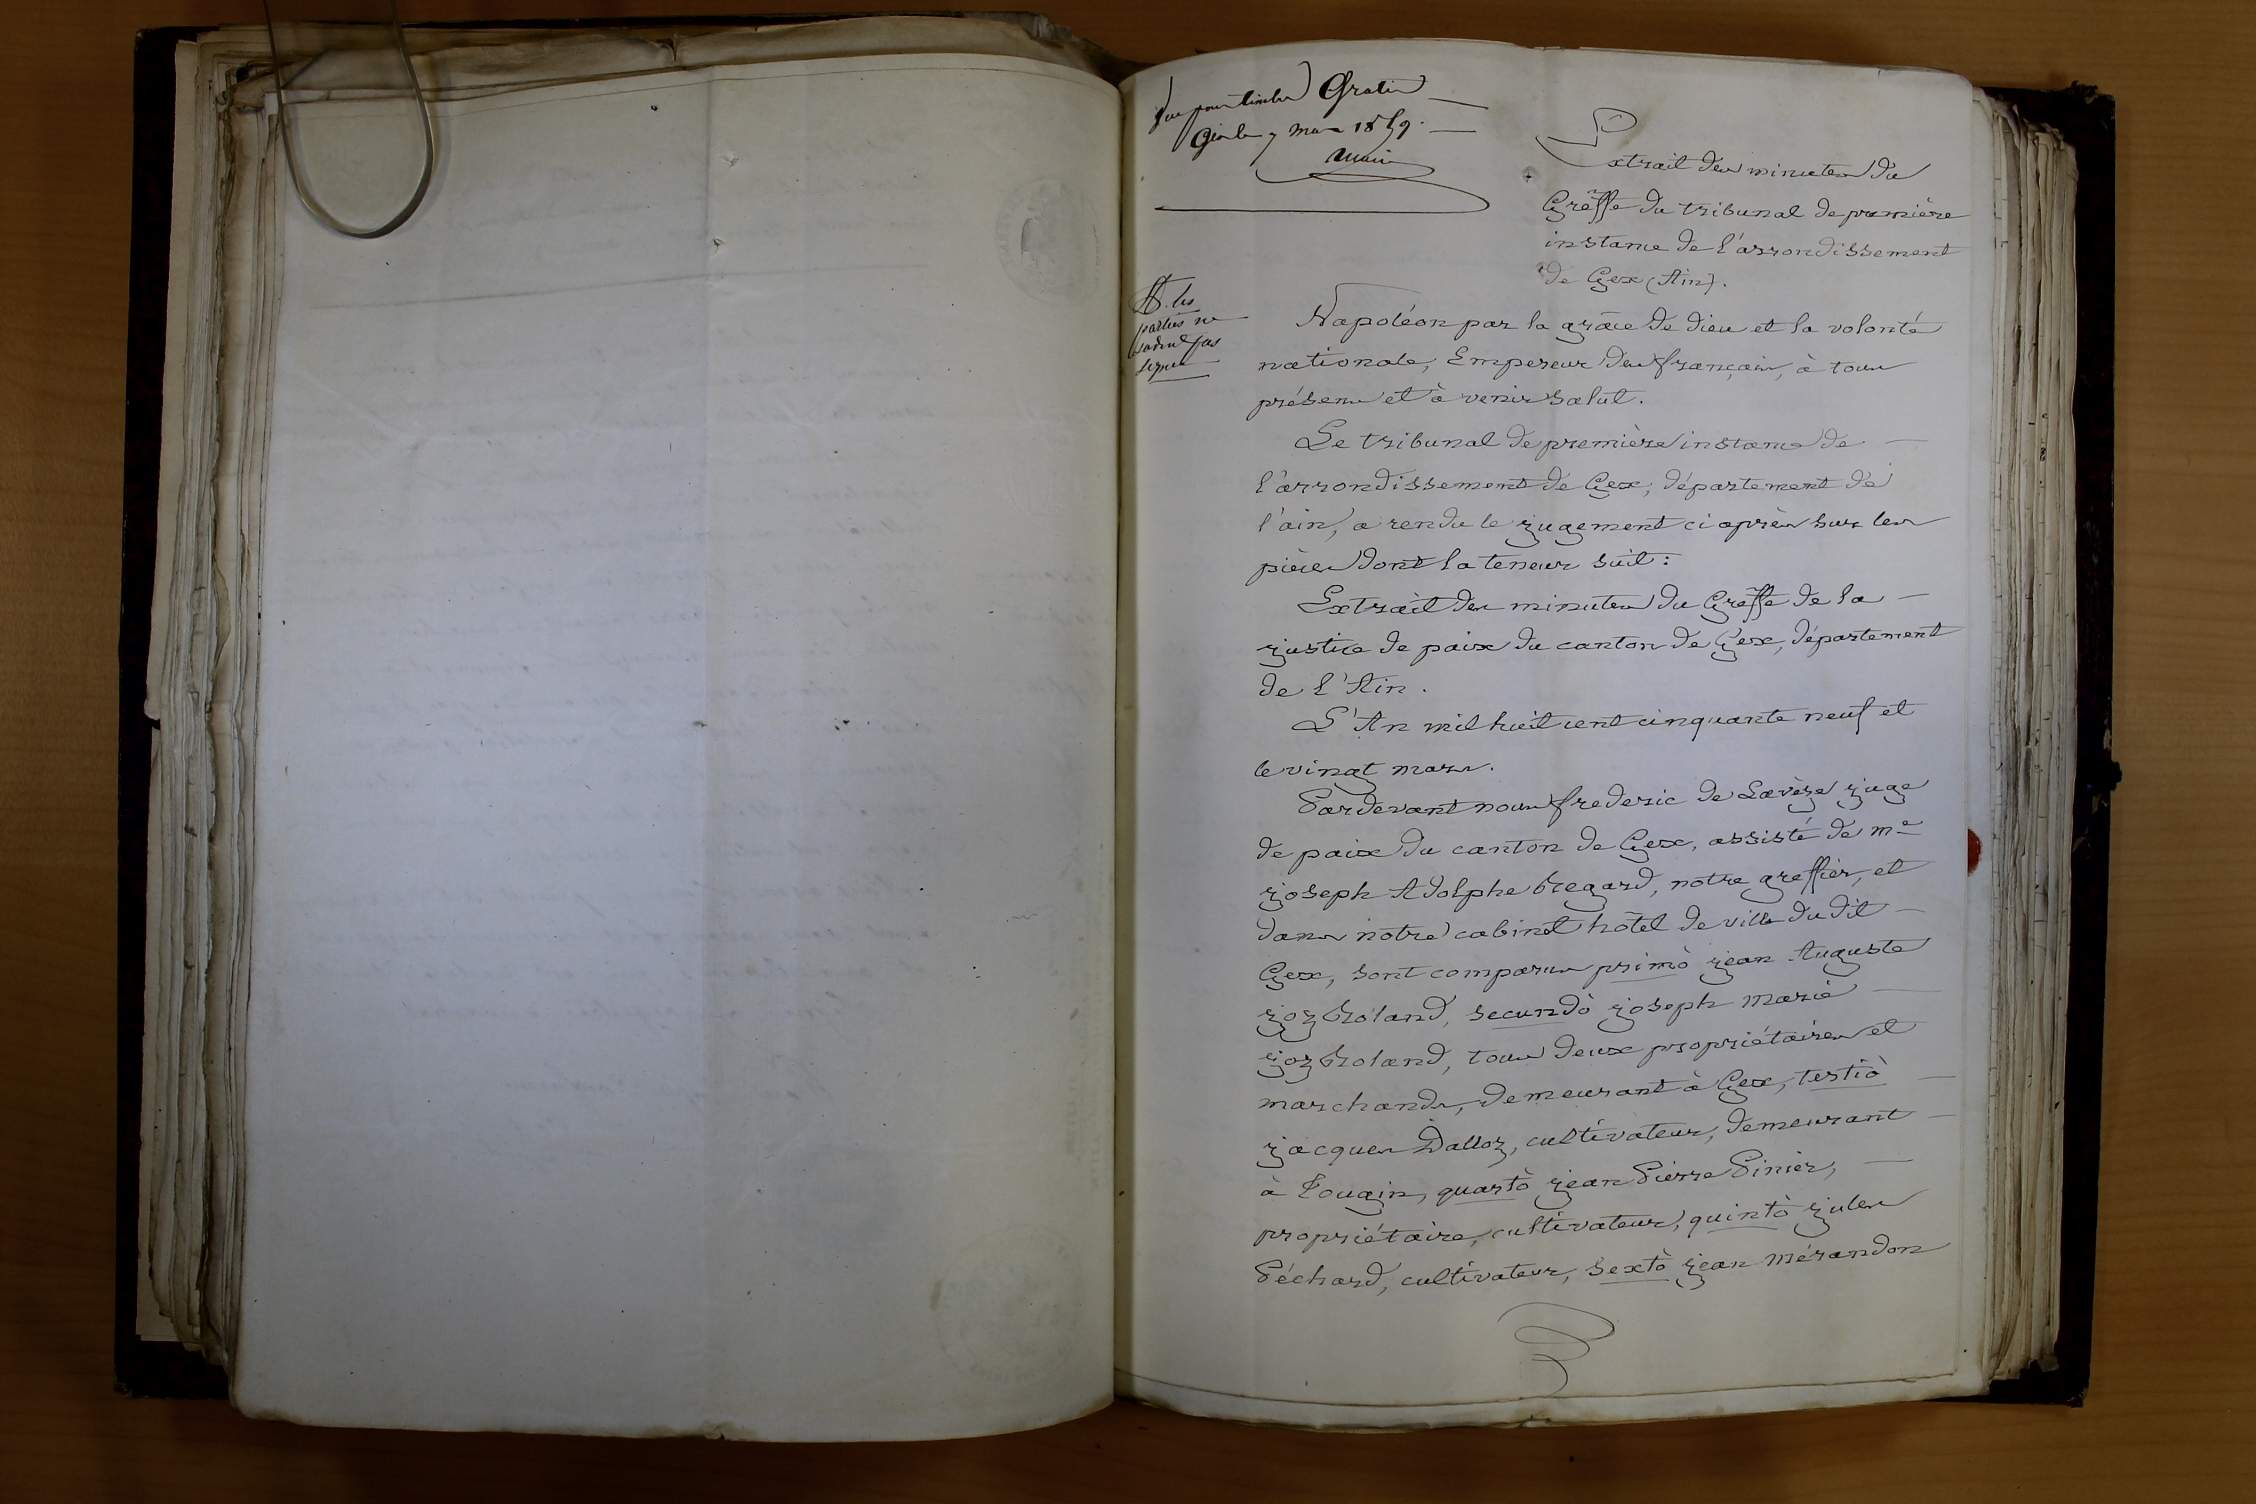 Vu pour timbre Gratis
Gex le 7 mai 1859.
Extrait des minutes du
Greffe du tribunal de première
instance de l'arrondissement
de Gex (Ain).
les
parties ne
savent pas
signer
Napoléon par la grâce de dieu et la volonté
nationale, Empereur des français, à tous
présens et à venir salut.
Le tribunal de première instance de
l'arrondissement de Gex, département de
l'ain, a rendu le jugement ci après sur les
pièces dont la teneur suit :
Extrait des minutes du Greffe de la
justice de paix du canton de Gex, département
de l'Ain.
L'An mil huit cent cinquante neuf et
le vingt mars.
Pardevant nous frederic de Lavèze juge
de paix du canton de Gex, assisté de me
joseph Adolphe Regard, notre greffier, et
dans notre cabinet hôtel de ville du dit
Gex, sont comparus primò jean Auguste
joz Roland, secundò joseph marie
joz Roland, tous deux propriétaires et
marchands, demeurant à Gex, tertiò
jacques Dalloz, cultivateur, demeurant
à Tougin, quartò jean Pierre Pinier,
propriétaire, cultivateur, quintò jules
Péchard, cultivateur, sextò jean mérandon